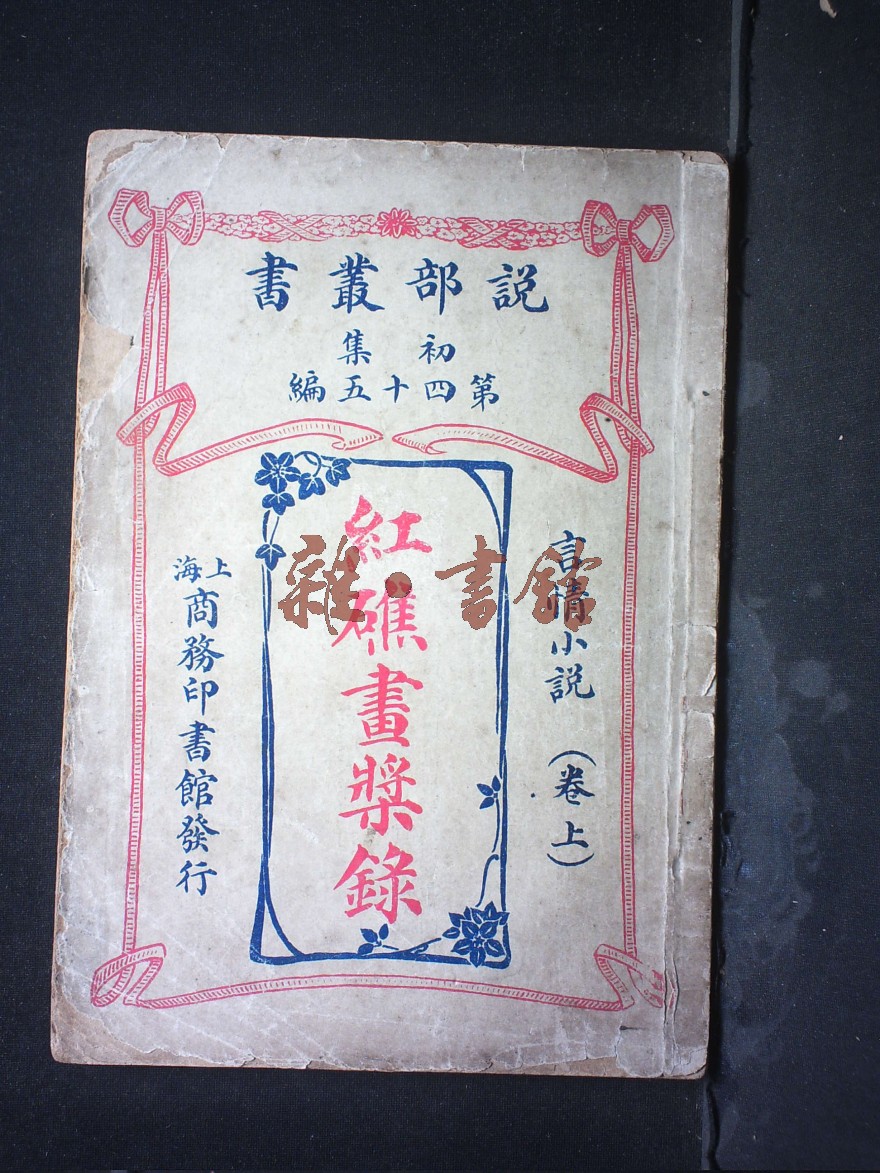 説部叢書
初集
第四十五編
言情小説（卷上）
紅礁畫槳錄
上海商務印書館發行
雜·書館